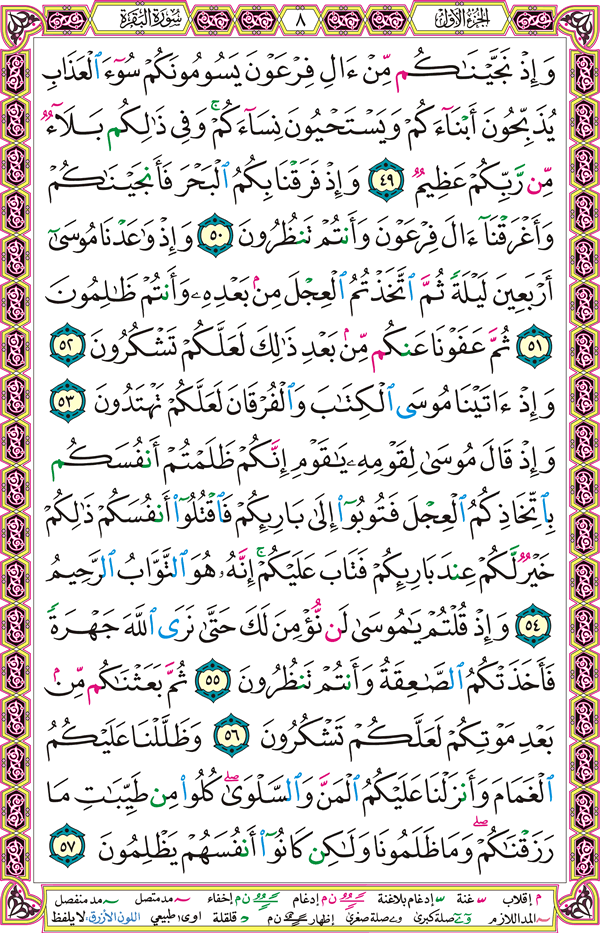 الجزء الأول
٨
سورة البقرة
وَإِذْ نَجَّيْنَاكُم مِّنْ ءَالِ فِرْعَوْنَ يَسُومُونَكُمْ سُوٓءَ الْعَذَابِ
يُذَبِّحُونَ أَبْنَآءَكُمْ وَيَسْتَحْيُونَ نِسَآءَكُمْ ۚ وَفِي ذَٰلِكُم بَلَآءٌ
مِّن رَّبِّكُمْ عَظِيمٌ ٤٩ وَإِذْ فَرَقْنَا بِكُمُ الْبَحْرَ فَأَنجَيْنَاكُمْ
وَأَغْرَقْنَآ ءَالَ فِرْعَوْنَ وَأَنتُمْ تَنظُرُونَ ٥٠ وَإِذْ وَاعَدْنَا مُوسَىٰٓ
أَرْبَعِينَ لَيْلَةً ثُمَّ اتَّخَذْتُمُ الْعِجْلَ مِنۢ بَعْدِهِۦ وَأَنتُمْ ظَالِمُونَ
٥١ ثُمَّ عَفَوْنَا عَنكُم مِّنۢ بَعْدِ ذَٰلِكَ لَعَلَّكُمْ تَشْكُرُونَ ٥٢
وَإِذْ ءَاتَيْنَا مُوسَى الْكِتَابَ وَالْفُرْقَانَ لَعَلَّكُمْ تَهْتَدُونَ ٥٣
وَإِذْ قَالَ مُوسَىٰ لِقَوْمِهِۦ يَاقَوْمِ إِنَّكُمْ ظَلَمْتُمْ أَنفُسَكُم
بِاتِّخَاذِكُمُ الْعِجْلَ فَتُوبُوٓا إِلَىٰ بَارِئِكُمْ فَاقْتُلُوٓا أَنفُسَكُمْ ذَٰلِكُمْ
خَيْرٌ لَّكُمْ عِندَ بَارِئِكُمْ فَتَابَ عَلَيْكُمْ ۚ إِنَّهُۥ هُوَ التَّوَّابُ الرَّحِيمُ
٥٤ وَإِذْ قُلْتُمْ يَامُوسَىٰ لَن نُّؤْمِنَ لَكَ حَتَّىٰ نَرَى اللَّهَ جَهْرَةً
فَأَخَذَتْكُمُ الصَّاعِقَةُ وَأَنتُمْ تَنظُرُونَ ٥٥ ثُمَّ بَعَثْنَاكُم مِّنۢ
بَعْدِ مَوْتِكُمْ لَعَلَّكُمْ تَشْكُرُونَ ٥٦ وَظَلَّلْنَا عَلَيْكُمُ
الْغَمَامَ وَأَنزَلْنَا عَلَيْكُمُ الْمَنَّ وَالسَّلْوَىٰ ۖ كُلُوا مِن طَيِّبَاتِ مَا
رَزَقْنَاكُمْ ۖ وَمَا ظَلَمُونَا وَلَٰكِن كَانُوٓا أَنفُسَهُمْ يَظْلِمُونَ ٥٧
م إقلاب غنة إدغام بلاغنة ن م إدغام ن م إخفاء مد متصل مد منفصل
المد اللازم صلة كبرى صلة صغرى إظهار ن م قلقلة اوى: طبيعي اللون الأزرق: لا يلفظ